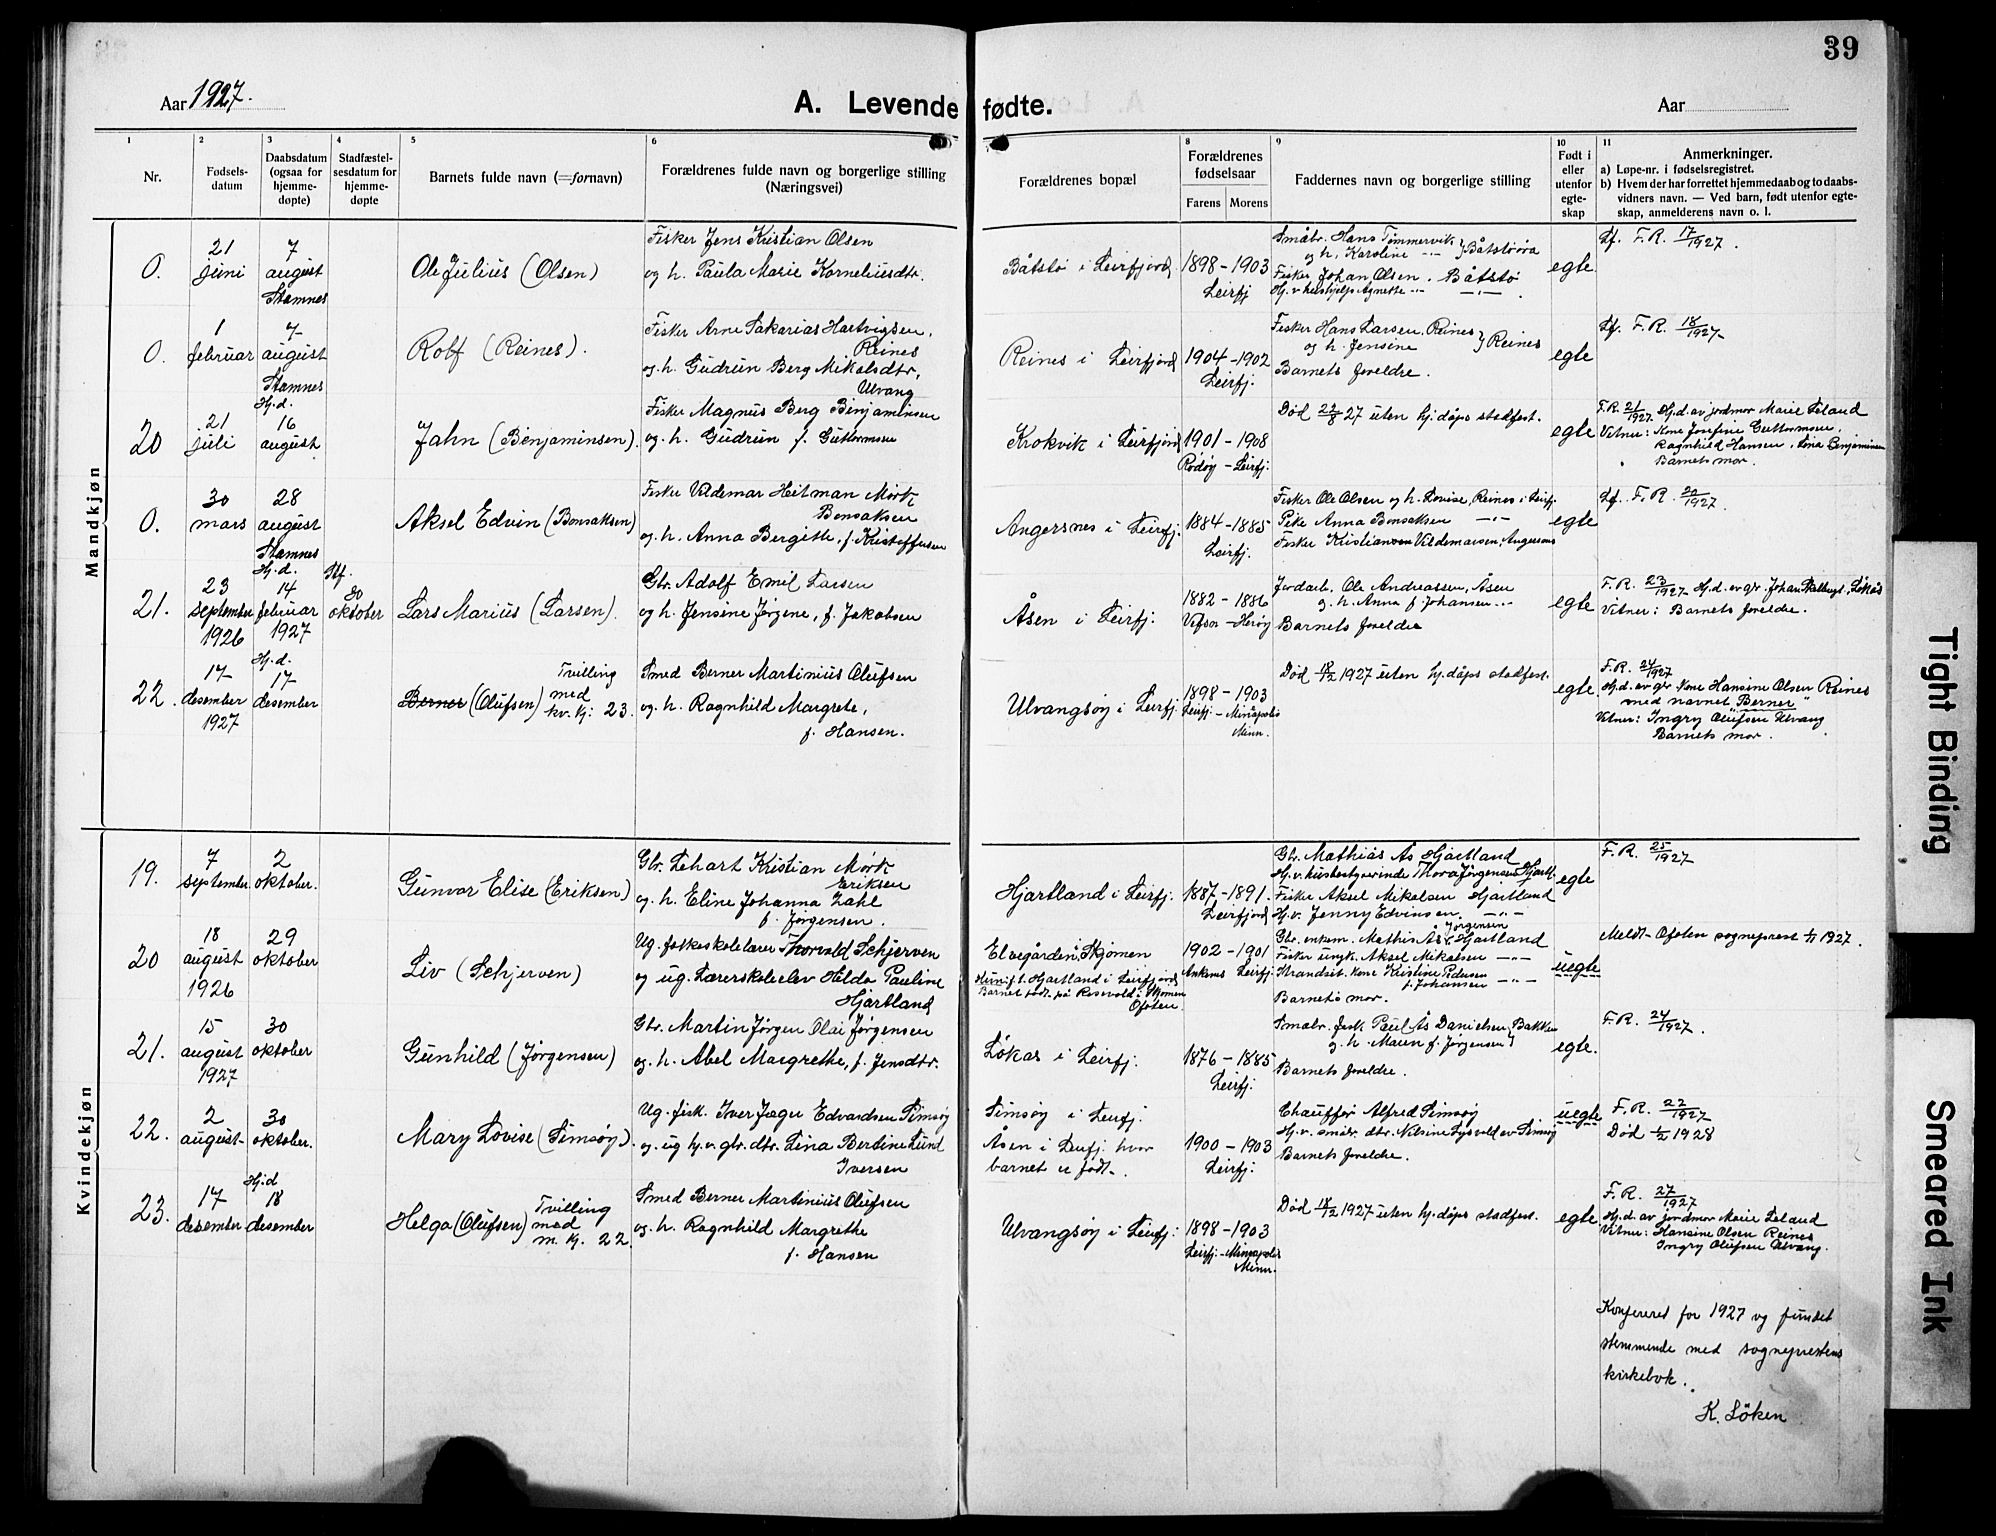 39
Aar 1927.
A. Levende fødte.
Aar
1 2 3 4 5 6 8 9 10 11
Nr.
Fødsels-
datum
Daabsdatum
(ogsaa for
hjemme-
døpte)
Stadfæstel-
sesdatum for
hjemme-
døpte
Barnets fulde navn (=fornavn)
Forældrenes fulde navn og borgerlige stilling
(Næringsvei)
Forældrenes bopæl
Forældrenes
fødselsaar
Farens Morens
Faddernes navn og borgerlige stilling
Født i
eller
utenfor
egte-
skap
Anmerkninger.
a) Løpe-nr. i fødselsregistret.
b) Hvem der har forrettet hjemmedaab og to daabs-
vidners navn. — Ved barn, født utenfor egte-
skap, anmelderens navn o. l.
Mandkjøn
0.
21
juni
7
august
Stamnes
Ole Julius (Olsen)
Fisker Jens Kristian Olsen
og h. Paula Marie Korneliusdtr.
Båtstø i Leirfjord
1898 - 1903
Leirfj
Småbr. Hans Tømmervik
og h. Karoline -"- } Båtstøroa
Fisker Johan Olsen. Båtstø
Hj. v. hushjelp Agnette -"- -"-
egte
Lf. F. R. 17/1927.
0.
1
februar
7
august
Stamnes
Rolf (Reines).
Fisker Arne Sakarias Hartvigsen,
Reines
og h. Gudrun Berg Mikalsdtr,
Ulvang
Reines i Leirfjord
1904 - 1902
Leirfj:
Fisker Hans Larsen, Reines
og h. Jensine } Reines
Barnets foreldre.
egte
Lf. F. R. 18/1927.
20
21
juli
Hj. d.
16
august
Jahn (Benjaminsen).
Fisker Magnus Berg Benjaminsen
og h. Gudrun f. Guttormsen
Krokvik i Leirfjord
1901 - 1908
Rødøy - Leirfj:
Død 22/8 27 uten hj. dåps stadfest.
egte
F.R. 21/1927. Hj.d. av jordmor Marie Leland
Vitner: Kone Josefine Guttormsen,
Ragnhild Hansen, Lina Benjaminsen
Barnets mor.
0.
30
mars
28
august
Stamnes
Aksel Edvin (Bonsaksen)
Fisker Vildemar Heitman Mørk
Bonsaksen
og h. Anna Bergitte, f. Kristoffersen
Angersnes i Leirfj:
1884 - 1885
Leirfj:
Fisker Ole Olsen og h. Lovise, Reines i Leirfj.
Pike Anna Bonsaksen -"-
Fisker Kristian Vildemarsen, Angersnes
egte
Lf. F. R. 20/1927.
21.
23
september
1926
Hj.d.
14
februar
1927
Stf.
30
oktober
Lars Marius (Larsen).
Gbr. Adolf Emil Larsen
og h. Jensine Jørgene, f. Jakobsen
Åsen i Leirfj:
1882 - 1886
Vefsn - Herøy
Jordarb. Ole Andreassen, Åsen
g. h. Anna f. Johansen -"-
Barnets foreldre
egte
F. R. 23/1927. Hj.d. av gbr. Johan Løkås
Vitner: Barnets foreldre.
22.
17
desember
1927
Hj.d.
17
desember
Berner (Olufsen)
Tvilling
med
kv. kj: 23.
Smed Berner Martinius Olufsen
og h. Ragnhild Margrete,
f. Hansen.
Ulvangsøy i Leirfj:
1898 - 1903
Leirfj: - Minapolis
Minn.
Død 18/12 1927 uten hj. dåps stadfest.
egte
F. R. 24/1927
Hj.d. av gbr. Kone Hansine Olsen Reines
med navnet "Berner"
Vitner: Ingry Olufsen Ulvang
Barnets mor.
Kvindekjøn
19.
7
september
2
oktober.
Gunvor Elise (Eriksen)
Gbr. Lehart Kristian Mørk
Eriksen
og h. Eline Johanna Zahl
f. Jørgensen.
Hjartland i Leirfj.
1887 - 1891.
Leirfjord
Gbr. Mathias As Hjartland
Hj. v. husbestyrerinde Thora Jørgensen Hjartl.
Fisker Aksel Mikalsen Hjartland
Hj.v. Jenny Edvinsen. -"-
egte
F. R. 25/1927
20
18
august
1926
29
oktober
Liv (Schjerven)
Ug. folkeskolelærer Thorvald Schjerven
og ug. Lærerskoleelev Helda Pauline
Hjartland
Elvegården, Skjomen
Hun: f. t. Hjartland i Leirfjord
Barnet født på Rosvold i Skjomen
Ofoten
1902 - 1901
Ankenes Leirfj:
Jørgensen
Gbr. enkem. Mathis Ås, Hjartland
Fisker ungk. Aksel Mikalsen -"-
Strandsit. kone Kristine Pedersen
f. Johansen -"-
Barnets mor.
uegte
Meldt Ofoten sogneprest 1927.
21.
15
august
1927
30
oktober
Gunhild (Jørgensen)
Gbr. Martin Jørgen Olai Jørgensen
og h. Abel Margrethe, f. Jensdtr.
Løkås i Leirfj:
1876 - 1885
Leirfj:
Småbr. fisk. Paul Ås Danielsen, Bakken
og h. Maren f. Jørgensen }
Barnets foreldre.
egte.
F. R. 24/1927.
22.
2
august
30
oktober.
Mary Lovise (Simsøy).
Ug. fisk. Iver Jæger Edvardsen Simsøy
og ug hj. v. gbr. dtr. Lina Berdine Lund
Iversen
Simsøy i Leirfj.
Åsen i Leirfj: hvor
barnet er født.
1900 - 1903
Leirfj:
Chauffør Alfred Simsøy
Hj. v. småbr. dtr. Nilsine Sysvold av Simsøy
Barnets foreldre.
uegte
F. R. 22/1927
Død 1/2 1928
23.
17
desember
Hj.d
18
desember
Helga (Olufsen)
Tvilling
med
m. kj. 22.
Smed Berner Martinius Olufsen
og h. Ragnhild Margrethe
f. Hansen
Ulvangsøy i Leirfj:
1898 - 1903
Leirfj: - Minapolis
Minn.
Død 18/12 1927 uten hj. dåps stadfest.
egte.
F. R. 27/1927
Hj.d. av jordmor Marie Leland
Vitner: Hansine Olsen Reines
Ingry Olufsen Ulvang.
Konferert for 1927 og fundet
stemmende med sogneprestens
kirkebok.
K. Löken
Tight Binding
Smeared Ink